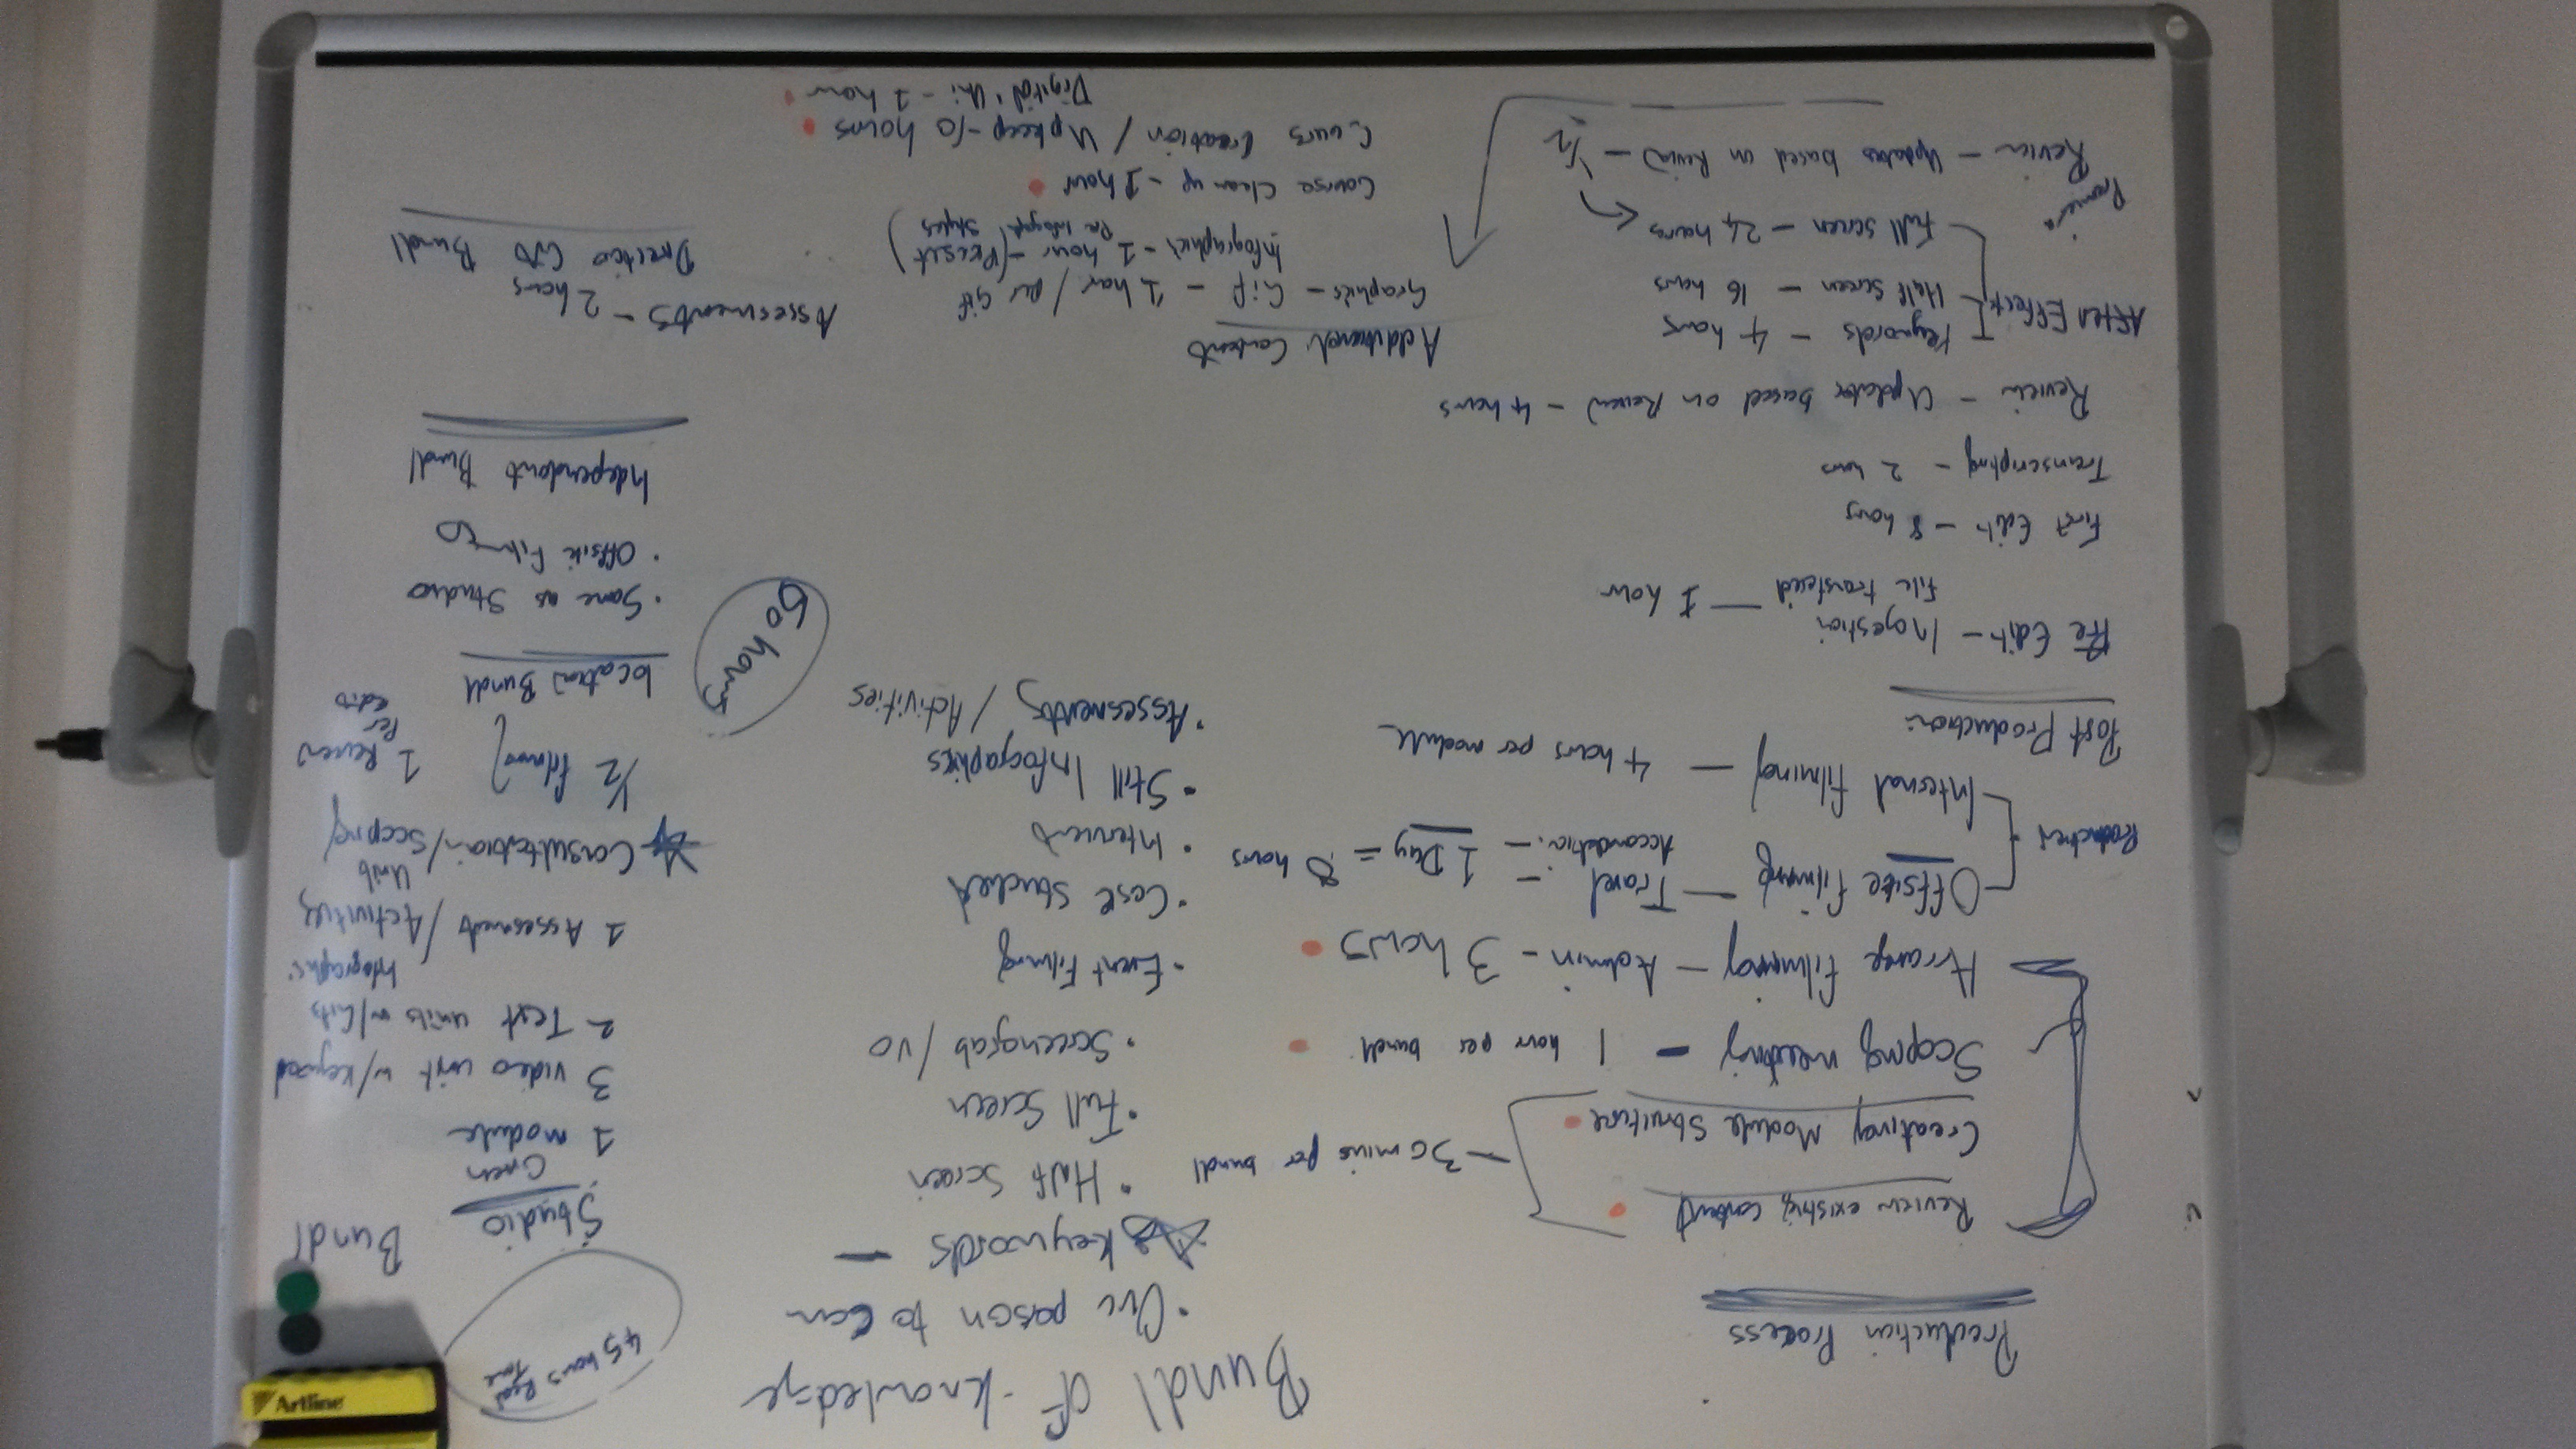 Production Process
Review existing content
Creating Module Structure
30 mins per bundl
Scoping meeting - 1 hour per bundl
Arrange filming - Admin - 3 hours
Offsite filming - Travel -
Accomodation - 1 Day = 8 hours
Internal filming - 4 hours per module
Post Production
Pre Edit - Ingestion
File transfered - 1 hour
First Edit - 8 hours
Transcripting - 2 hours
Review - Updates based on Review - 4 hours
After Effects
Keywords - 4 hours
Half screen - 16 hours
Full screen - 24 hours
Review - Updates based on Review - 1/2
Bundl of knowledge
person to
Keywords -
Half Screen
Full Screen
Screengrab / VO
Event Filming
Case
Still Infographics
Assesments / Activities
Additional Content
Graphics - Gif - 1 hour / per Gif
Infographics - 1 hour - (Preset
Per Infograph Styles)
Course Clean up - 1 hour
Creation / Upkeep - hours
Digital Uni - 1 hour
45 hours Real
Time
Studio Bundl
1 module
3 video unit w/ keyword
2 Text units w/
Infographs
1 Assesment / Activities
Unit
Consultation / Scoping
1/2 filming
1 Review
Per
Edit
60 hours
Location Bundl
Same as Studio
Offsite Filming
Independant Bundl
Assesments - 2 hours
Bundl
Artline